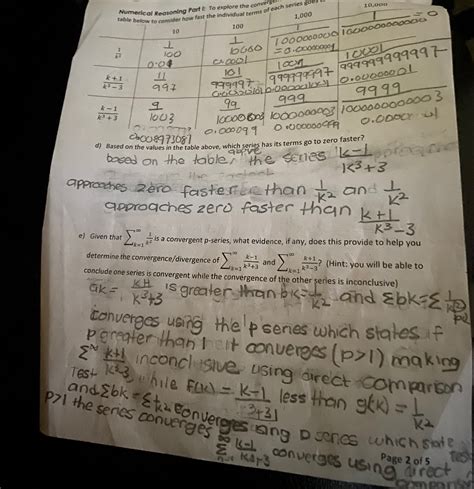 Numerical Reasoning Part I: To explore the converge
table below to consider how fast the individual terms of each series goes
10 100 1,000 10,000
1/k² 1/100 0.01 1/10000 0.0001 1/1000000 = 0.000001 1/100000000
k+1/k³−3 11/997 101/999997 1001/999999997 10001/999999999997
k−1/k³+3 9/1003 99/1000003 999/1000000003 9999/1000000000003
0.008973081 0.000099
d) Based on the values in the table above, which series has its terms go to zero faster?
based on the table, the series k−1/k³+3
approaches zero faster than 1/k² and 1/k²
approaches zero faster than k+1/k³−3
e) Given that ∑∞k=1 1/k² is a convergent p-series, what evidence, if any, does this provide to help you
determine the convergence/divergence of ∑∞k=1 k−1/k³+3 and ∑∞k=1 k+1/k³−3? (Hint: you will be able to
conclude one series is convergent while the convergence of the other series is inconclusive)
is greater than bk = 1/k² and Σbk = Σ 1/k²
converges using the p series which states if
p greater than 1 it converges (p>1) making
Σ∞ k+1/k³−3 inconclusive using direct comparison
Test, while f(k) = k−1/k³+3 less than g(k) = 1/k²
and Σbk = Σ 1/k² converges using p series which state
p>1 the series converges Σ∞ k−1/k³+3 converges using direct
Page 2 of 5